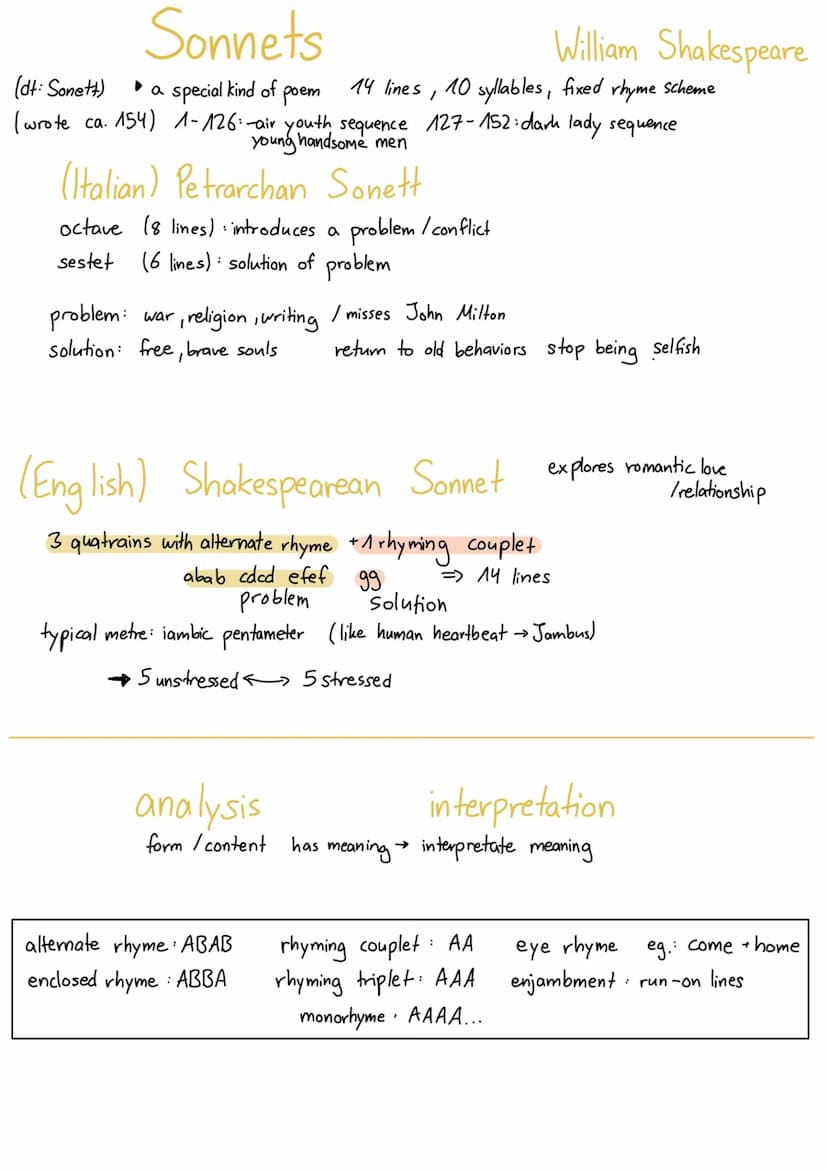 Sonnets William Shakespeare
(dt: Sonett) ▸ a special kind of poem 14 lines, 10 syllables, fixed rhyme scheme
(wrote ca. 154) 1-126: -air youth sequence 127-152: dark lady sequence
young handsome men
(Italian) Petrarchan Sonett
octave (8 lines): introduces a problem/conflict
sestet (6 lines): solution of problem
problem: war, religion, writing / misses John Milton
solution: free, brave souls return to old behaviors stop being selfish
(English) Shakespearean Sonnet explores romantic love
/relationship
3 quatrains with alternate rhyme +1 rhyming couplet
abab cdcd efef gg => 14 lines
problem solution
typical metre: iambic pentameter (like human heartbeat → Jambus)
→ 5 unstressed ↔ 5 stressed
analysis interpretation
form /content has meaning → interpretate meaning
alternate rhyme: ABAB rhyming couplet: AA eye rhyme eg.: come + home
enclosed rhyme: ABBA rhyming triplet: AAA enjambment: run-on lines
monorhyme: AAAA...